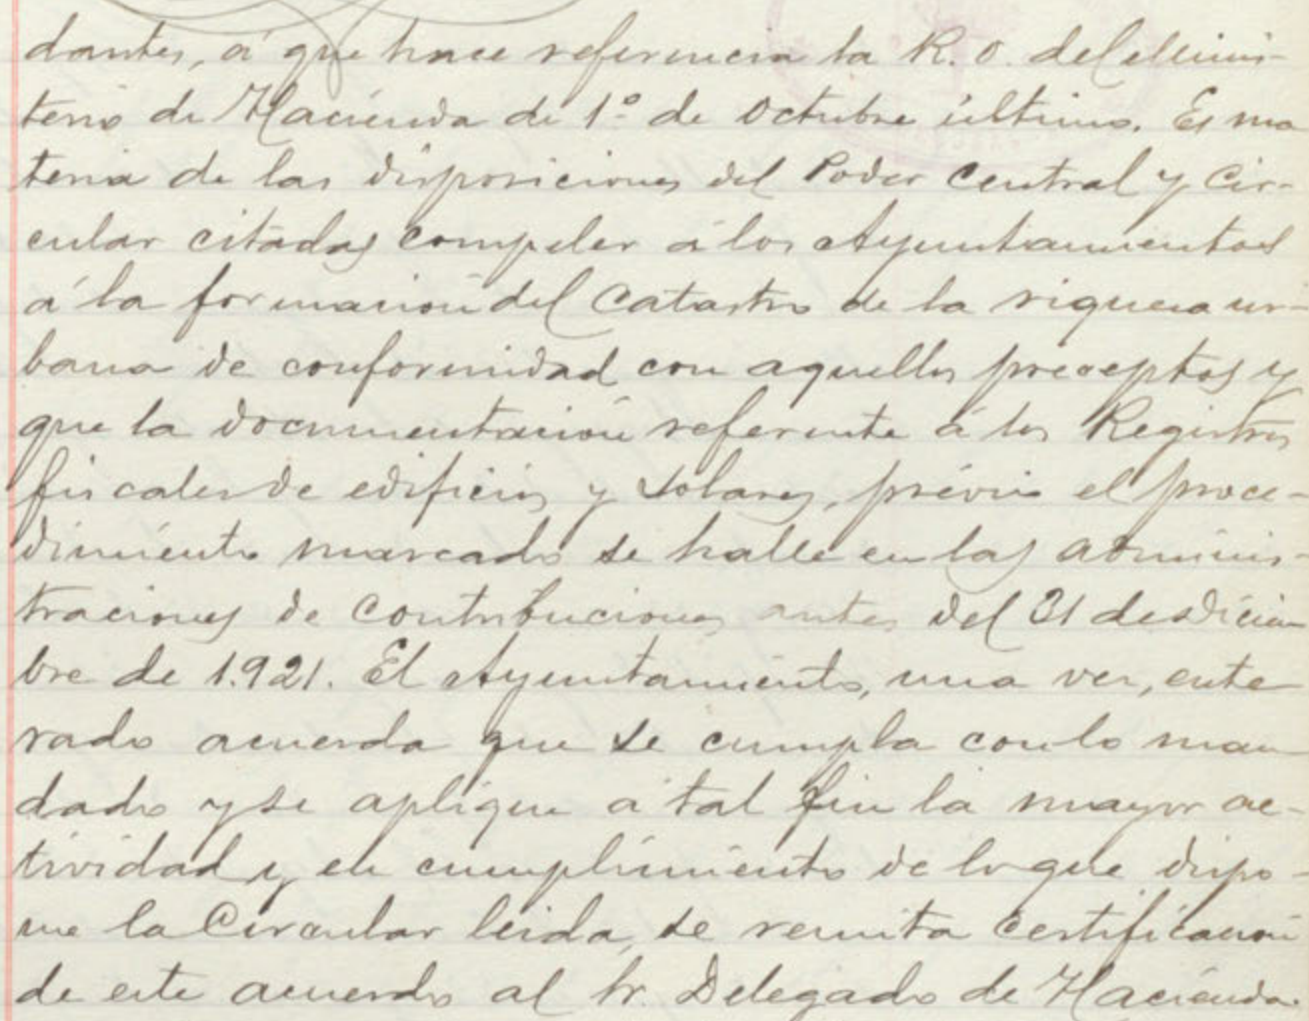 dantes, á que hace referencia la R. O. del Minis-
terio de Hacienda de 1º de Octubre último. Es ma
teria de las disposiciones del Poder Central y Cir-
cular citadas compeler á los Ayuntamientos
á la formación del Catastro de la riqueza ur-
bana de conformidad con aquellos preceptos y
que la documentación referente á los Registros
fiscales de edificios y solares, prévio el proce-
dimiento marcado se halle en las adminis-
traciones de Contribuciones antes del 31 de Diciem
bre de 1.921. El Ayuntamiento, una vez, ente
rado acuerda que se cumpla con lo man
dado y se aplique á tal fin la mayor ac-
tividad y en cumplimiento de lo que dispo-
ne la Circular leida, se remita certificación
de este acuerdo al Sr. Delegado de Hacienda.